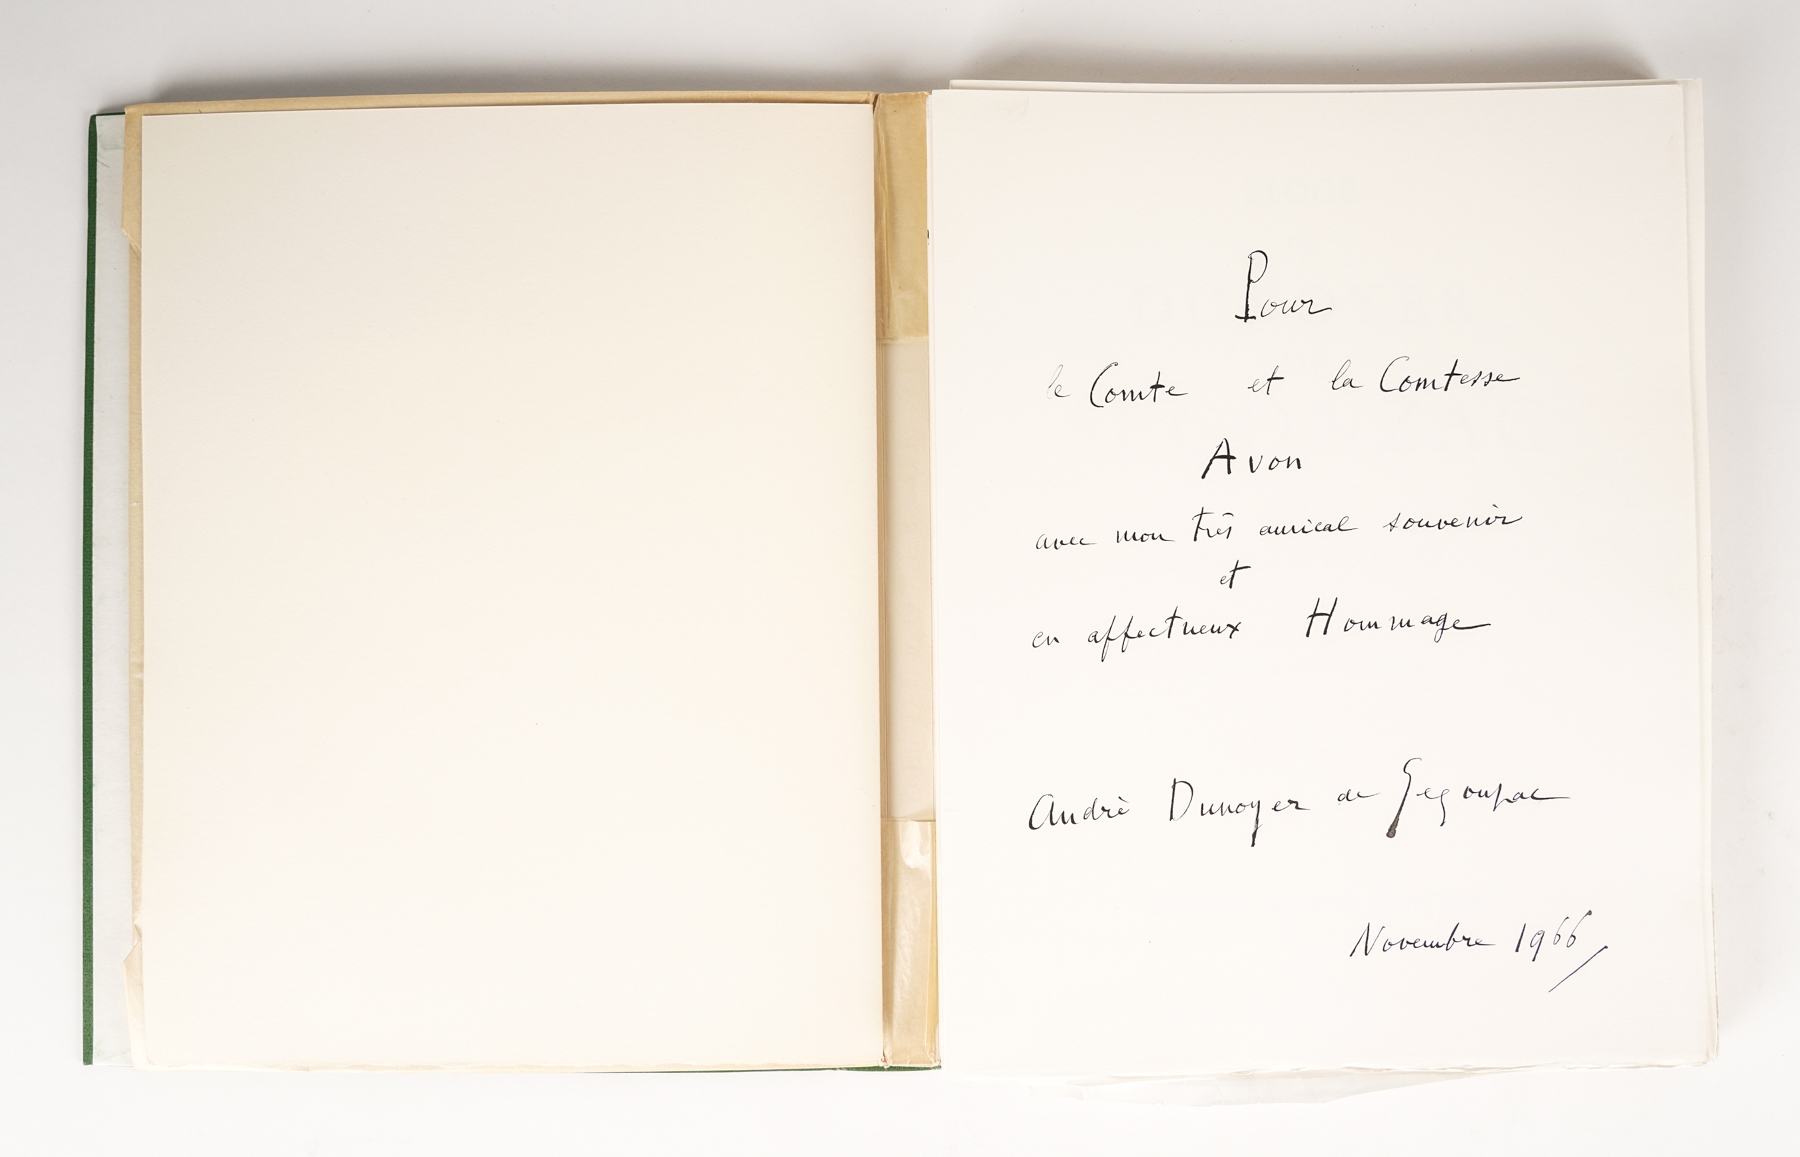 Pour
le Comte et la Comtesse
Avon
avec mon très amical souvenir
et
en affectueux Hommage
André Dunoyer de Segonzac
Novembre 1966